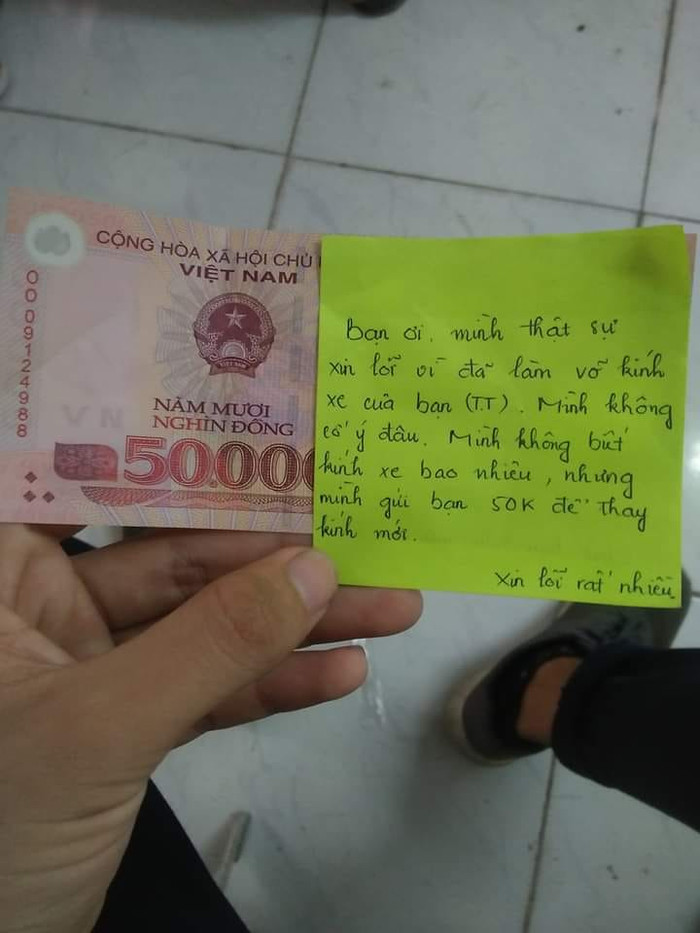 CỘNG HÒA XÃ HỘI CHỦ
VIỆT NAM
0009124988
VIỆT NAM
VN
NĂM MƯƠI
NGHÌN ĐỒNG
50.000
Bạn ơi, mình thật sự
xin lỗi vì đã làm vỡ kính
xe của bạn (T.T). Mình không
cố ý đâu. Mình không biết
kính xe bao nhiêu, nhưng
mình gửi bạn 50K để thay
kính mới.
Xin lỗi rất nhiều